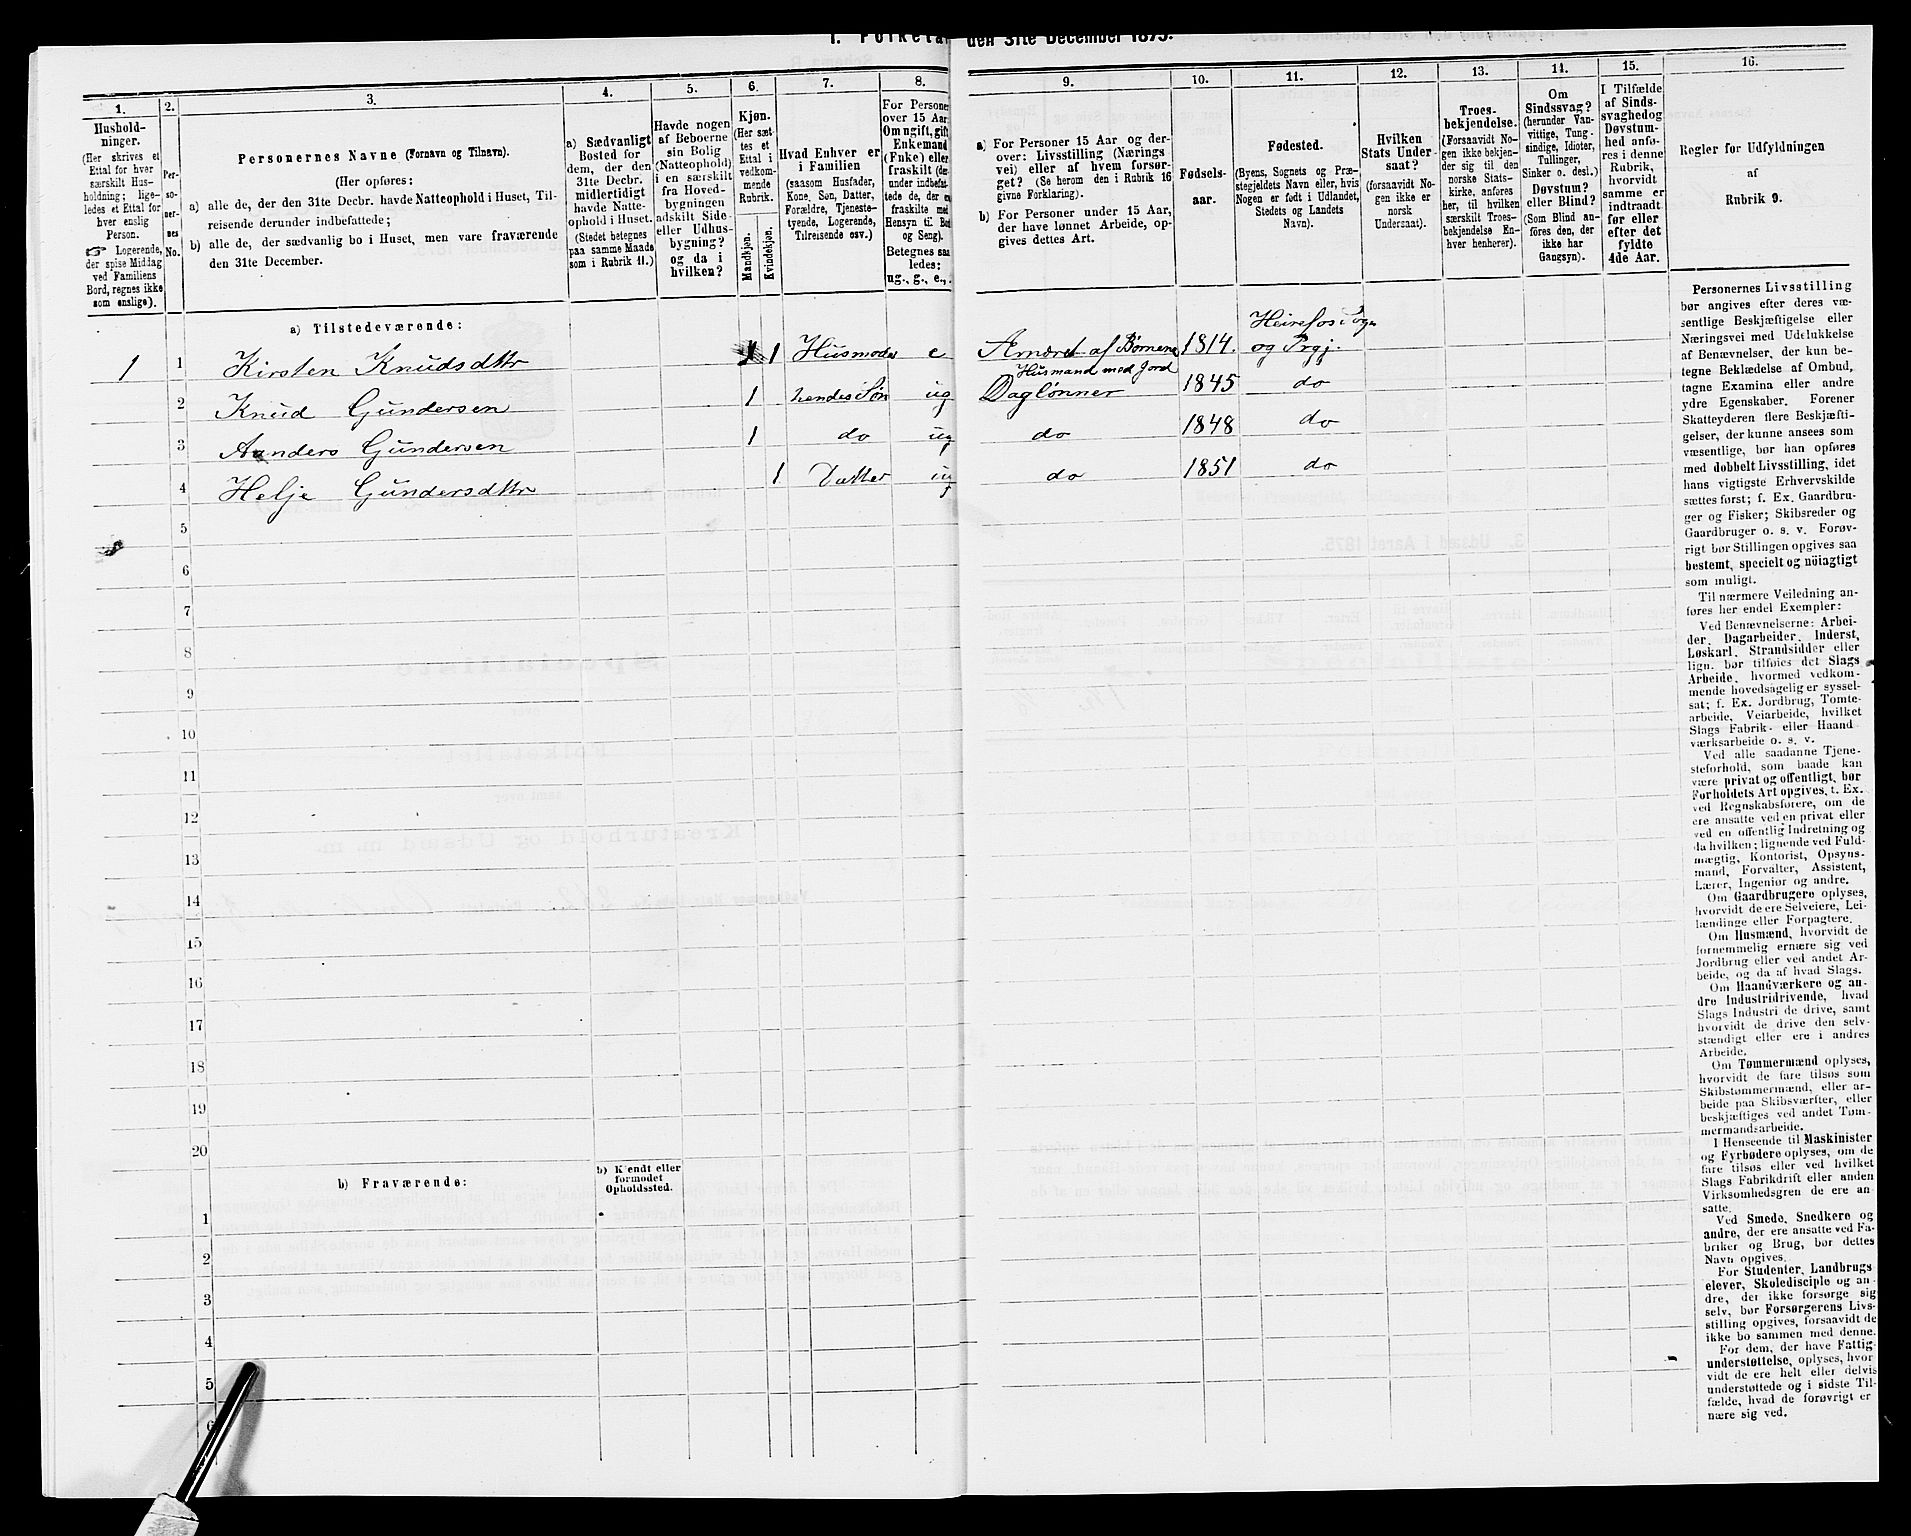 den 31te December 1875.
1.
Hushold-
ninger.
(Her skrives et
Ettal for hver
særskilt Hus-
holdning; lige-
ledes et Ettal for
hver enslig
Person.
☞ Logerende,
der spise Middag
ved Familiens
Bord, regnes ikke
som enslige).
2.
Per-
so-
ner-
nes
No.
3.
Personernes Navne (Fornavn og Tilnavn).
(Her opføres:
a) alle de, der den 31te Decbr. havde Natteophold i Huset, Til-
reisende derunder indbefattede;
b) alle de, der sædvanlig bo i Huset, men vare fraværende
den 31te December.
4.
a) Sædvanligt
Bosted for
dem, der den
31te Decbr.
midlertidigt
havde Natte-
ophold i Huset.
(Stedet betegnes
paa samme Maade
som i Rubrik 11.)
5.
Havde nogen
af Beboerne
sin Bolig
(Natteophold)
i en særskilt
fra Hoved-
bygningen
adskilt Side-
eller Udhus-
bygning?
og da i
hvilken?
6.
Kjøn.
(Her sæt-
tes et
Ettal i
vedkom-
mende
Rubrik.
Mandkjøn.
Kvindekjøn.
7.
Hvad Enhver er
i Familien
(saasom Husfader,
Kone, Søn, Datter,
Forældre, Tjeneste-
tyende, Logerende,
Tilreisende osv.)
8.
For Personer
over 15 Aar:
Om ugift, gift
Enkemand
(Enke) eller
fraskilt
under indbefat-
fraskilte med
Hensyn til Bord
og Seng).
Betegnes saa
ledes:
ug., g., e.,
9.
a) For Personer 15 Aar og der-
over: Livsstilling (Nærings
vei) eller af hvem forsør-
get? (Se herom den i Rubrik 16
givne Forklaring).
b) For Personer under 15 Aar,
der have lønnet Arbeide, op-
gives dettes Art.
10.
Fødsels-
aar.
11.
Fødested.
(Byens, Sognets og Præ-
stegjeldets Navn eller, hvis
Nogen er født i Udlandet,
Stedets og Landets
Navn).
12.
Hvilken
Stats Under-
saat?
(forsaavidt No-
gen ikke er
norsk
Undersaat).
13.
Troes-
bekjendelse.
(Forsaavidt No-
gen ikke bekjen-
der sig til den
norske Stats-
kirke, anføres
her, til hvilken
særskilt Troes-
bekjendelse En-
hver henhører).
14.
Om
Sindssvag?
(herunder Van-
vittige, Tung-
sindige, Idioter,
Tullinger,
Sinker o. desl.)
Døvstum?
eller Blind?
(Som Blind an-
føres den, der
ikke har
Gangsyn).
15.
I Tilfælde
af Sinds-
svaghed og
Døvstum-
hed anfø-
res i denne
Rubrik,
hvorvidt
samme er
indtraadt
før eller
efter det
fyldte
4de Aar.
16.
Regler for Udfyldningen
af
Rubrik 9.
a) Tilstedeværende:
1 1 Kirsten Knudsdttr 1 Husmoder e Ærnæret af Børnene 1814. Heirefos Sogn og Prgj.
2 Knud Gundersen 1 hendes Søn ug Husmand med Jord Daglønner 1845 do
3 Aanders Gundersen 1 do ug do 1848 do
4 Helje Gundersdttr 1 Datter ug do 1851 do
5
6
7
8
9
10
11
12
13
14
15
16
17
18
19
20
b) Fraværende:
b) Kjendt eller
formodet
Opholdssted.
1
2
3
4
5
6
Personernes Livsstilling
bør angives efter deres væ-
sentlige Beskjæftigelse eller
Næringsvei med Udelukkelse
af Benævnelser, der kun be-
tegne Beklædelse af Ombud,
tagne Examina eller andre
ydre Egenskaber. Forener
Skatteyderen flere Beskjæfti-
gelser, der kunne ansees som
væsentlige, bør han opføres
med dobbelt Livsstilling, idet
hans vigtigste Erhvervskilde
sættes først; f. Ex. Gaardbru-
ger og Fisker; Skibsreder og
Gaardbruger o. s. v. Forøv-
rigt bør Stillingen opgives saa
bestemt, specielt og nöiagtigt
som muligt.
Til nærmere Veiledning an-
føres her endel Exempler:
Ved Benævnelserne: Arbei-
der, Dagarbeider, Inderst,
Løskarl, Strandsidder eller
lign. bør tilføies det Slags
Arbeide, hvormed vedkom-
mende hovedsagelig er syssel-
sat; f. Ex. Jordbrug, Tomte-
arbeide, Veiarbeide, hvilket
Slags Fabrik- eller Haand
værksarbeide o. s. v.
Ved alle saadanne Tjene-
steforhold, som baade kan
være privat og offentligt, bør
Forholdets Art opgives, t. Ex.
ved Regnskabsførere, om de
ere ansatte ved en privat eller
ved en offentlig Indretning og
da hvilken; lignende ved Fuld-
mægtig, Kontorist, Opsyns-
mand, Forvalter, Assistent,
Lærer, Ingeniør og andre.
Om Gaardbrugere oplyses,
hvorvidt de ere Selveiere, Lei-
lændinge eller Forpagtere.
Om Husmænd, hvorvidt de
fornemmelig ernære sig ved
Jordbrug eller ved andet Ar-
beide, og da af hvad Slags.
Om Haandværkere og an-
dre Industridrivende, hvad
Slags Industri de drive, samt
hvorvidt de drive den selv-
stændigt eller ere i andres
Arbeide.
Om Tømmermænd oplyses,
hvorvidt de fare tilsøs som
Skibstømmermænd, eller ar-
beide paa Skibsværfter, eller
beskjæftiges ved andet Tøm-
mermandsarbeide.
I Henseende til Maskinister
og Fyrbødere oplyses, om de
fare tilsøs eller ved hvilket
Slags Fabrikdrift eller anden
Virksomhedsgren de ere an-
satte.
Ved Smede, Snedkere og
andre, der ere ansatte ved Fa-
briker og Brug, bør dettes
Navn opgives.
For Studenter, Landbrugs
elever, Skoledisciple og an-
dre, der ikke forsørge sig
selv, bør Forsørgerens Livs-
stilling opgives, forsaavidt de
ikke bo sammen med denne.
For dem, der have Fattig-
understøttelse, oplyses, hvor
vidt de ere helt eller delvis
understøttede og i sidste Til-
fælde, hvad de forøvrigt er
nære sig ved.